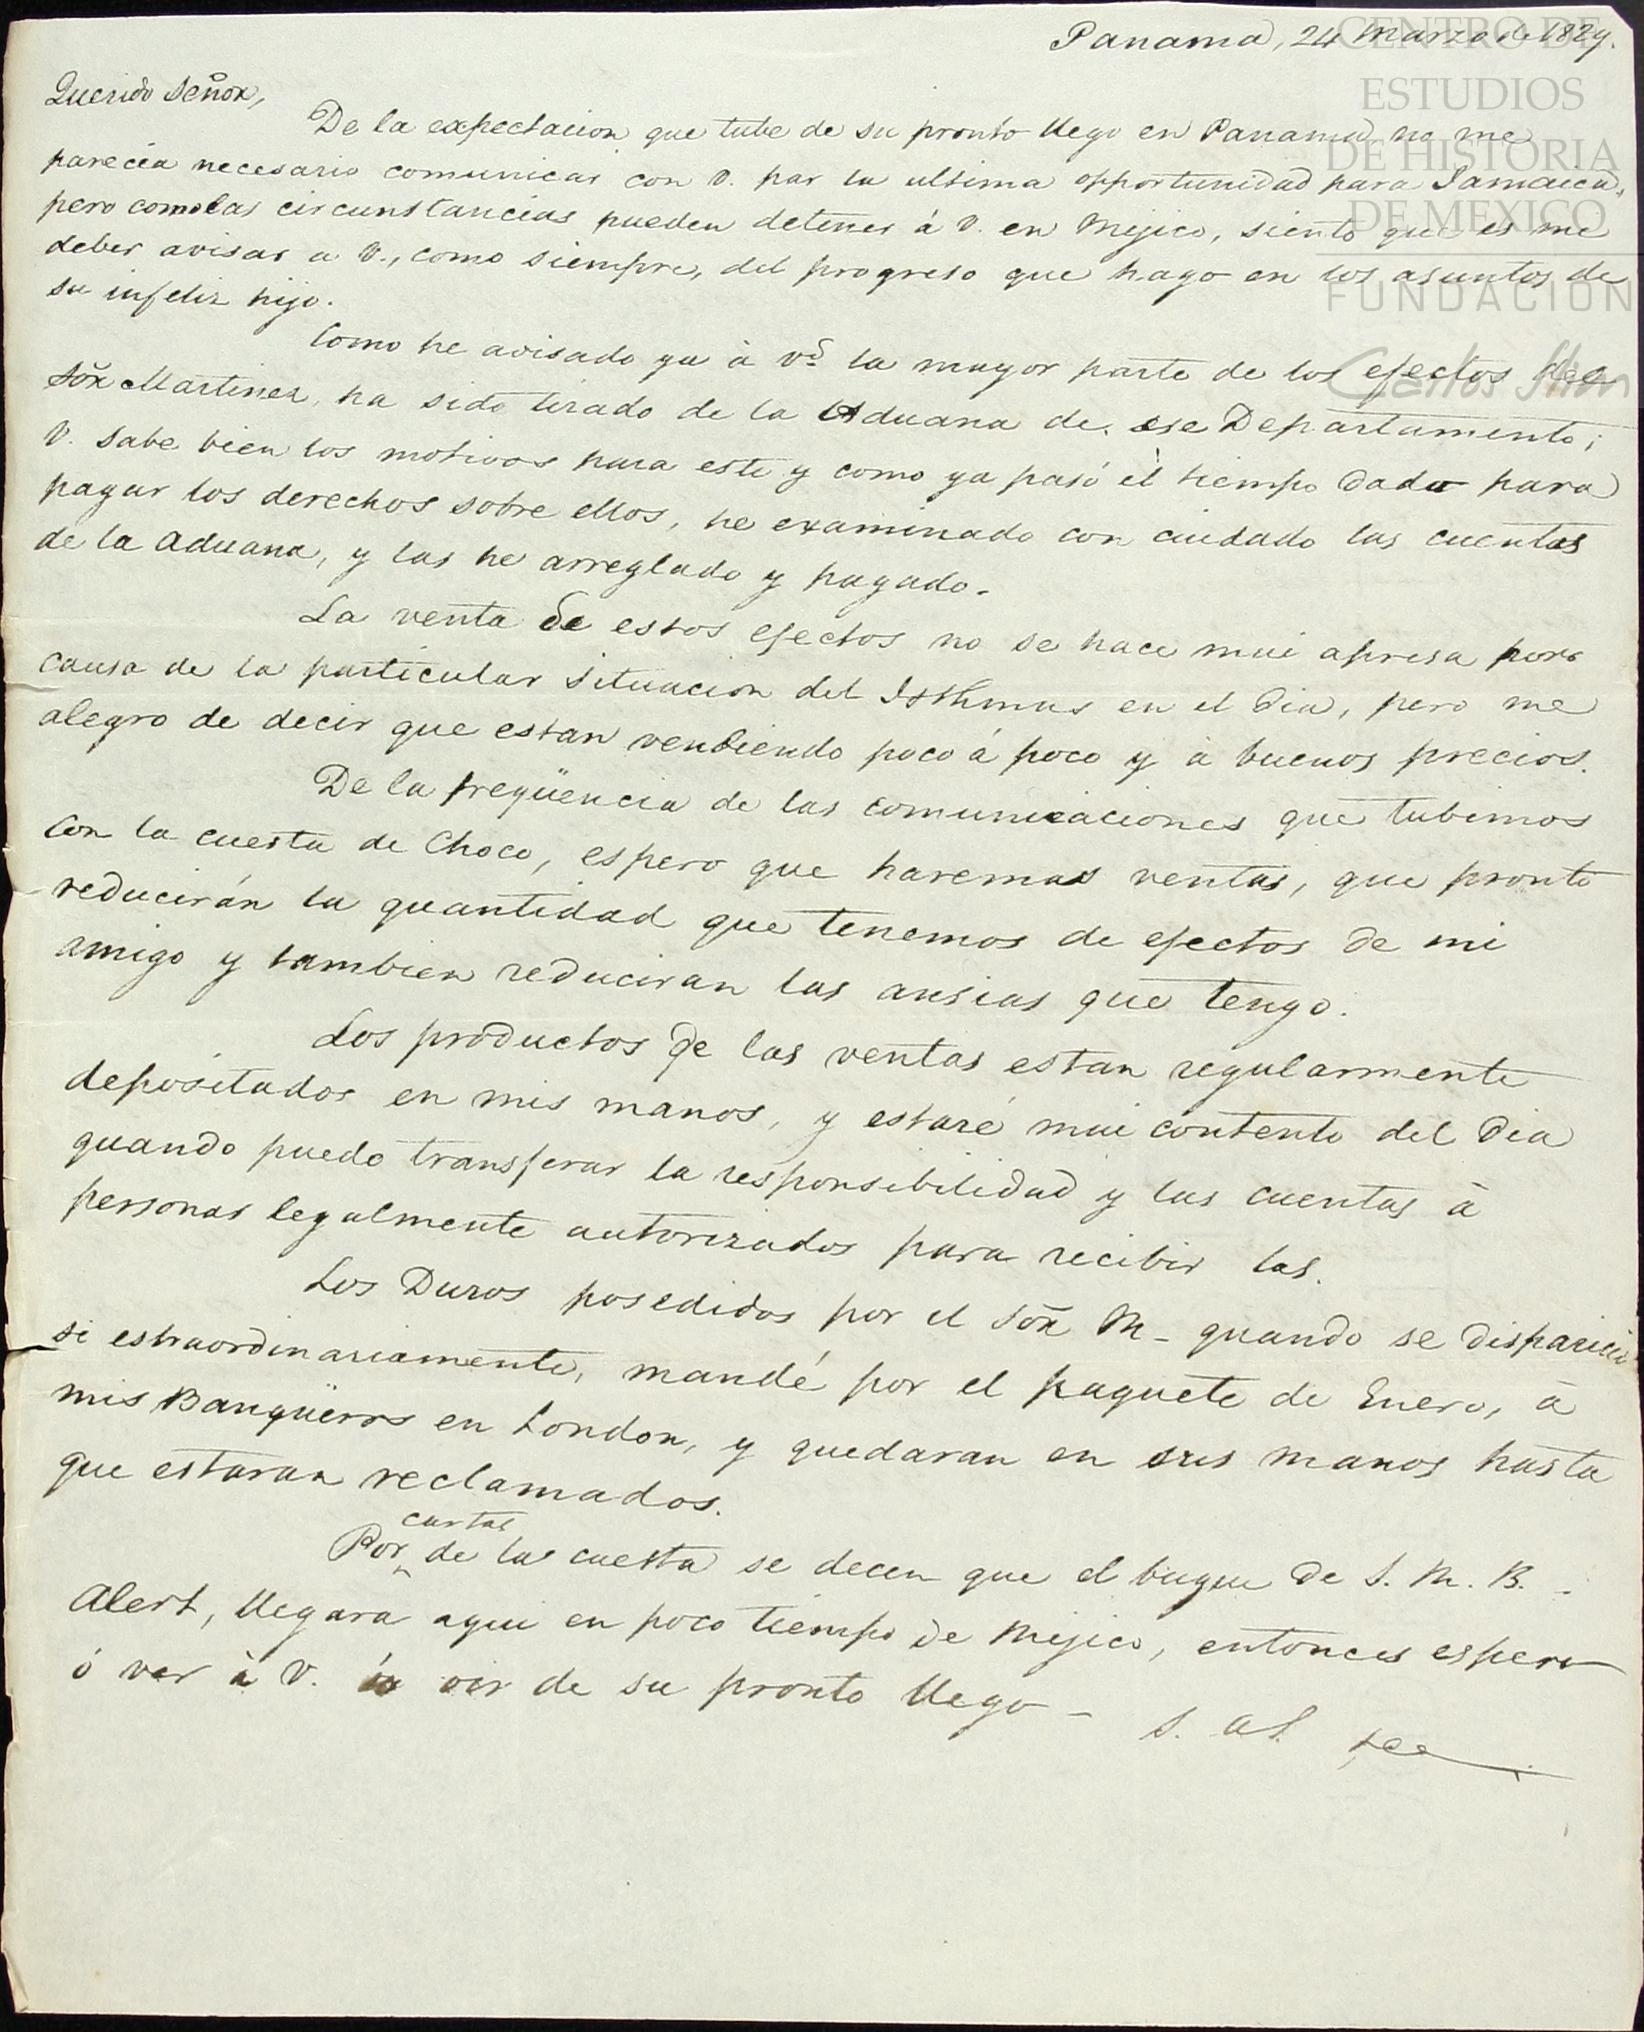 Panama, 24 Marzo de 1829.
CENTRO DE
ESTUDIOS
DE HISTORIA
DE MEXICO
FUNDACIÓN
Carlos Slim
Querido Señor,
De la expectacion que tube de su pronto llego en Panama no me
parecia necesario comunicar con V. par la ultima opportunidad para Jamaica,
pero como las circunstancias pueden detener á V. en Mejico, siento que es me
deber avisar a V., como siempre, del progreso que hago en los asuntos de
su infeliz hijo.
Como he avisado ya à Vd. la mayor parte de los efectos del
Sõr Martinez, ha sido tirado de la Aduana de ese Departamento;
V. sabe bien los motivos para este y como ya pasó el tiempo dado para
pagar los derechos sobre ellos, he examinado con cuidado las cuentas
de la aduana, y las he arreglado y pagado.
La venta de estos efectos no se hace mui apresa pero
causa de la particular situacion del Isthmus en el dia, pero me
alegro de decir que estan vendiendo poco á poco y à buenos precios.
De la freqüencia de las comunicaciones que tubimos
con la cuesta de Choco, espero que haremos ventas, que pronto
reducirán la quantidad que tenemos de efectos de mi
amigo y tambien reduciran las ansias que tengo.
Los productos de las ventas estan regularmente
depositados en mis manos, y estaré mui contento del dia
quando puedo transferar la responsibilidad y las cuentas à
personas legalmente autorizados para recibir las.
Los Duros posedidos por el Sõr M- quando se disparició
si estraordinariamente, mandé por el paquete de Enero, à
mis Banqüeros en London, y quedaran en sus manos hasta
que estaran reclamados.
cartas
Por de las cuesta se decen que el buque de S. M. B.
Alert, llegara aqui en poco tiempo de Mejico, entonces espero
ó ver à V. ò oir de su pronto llego -
S. a S.